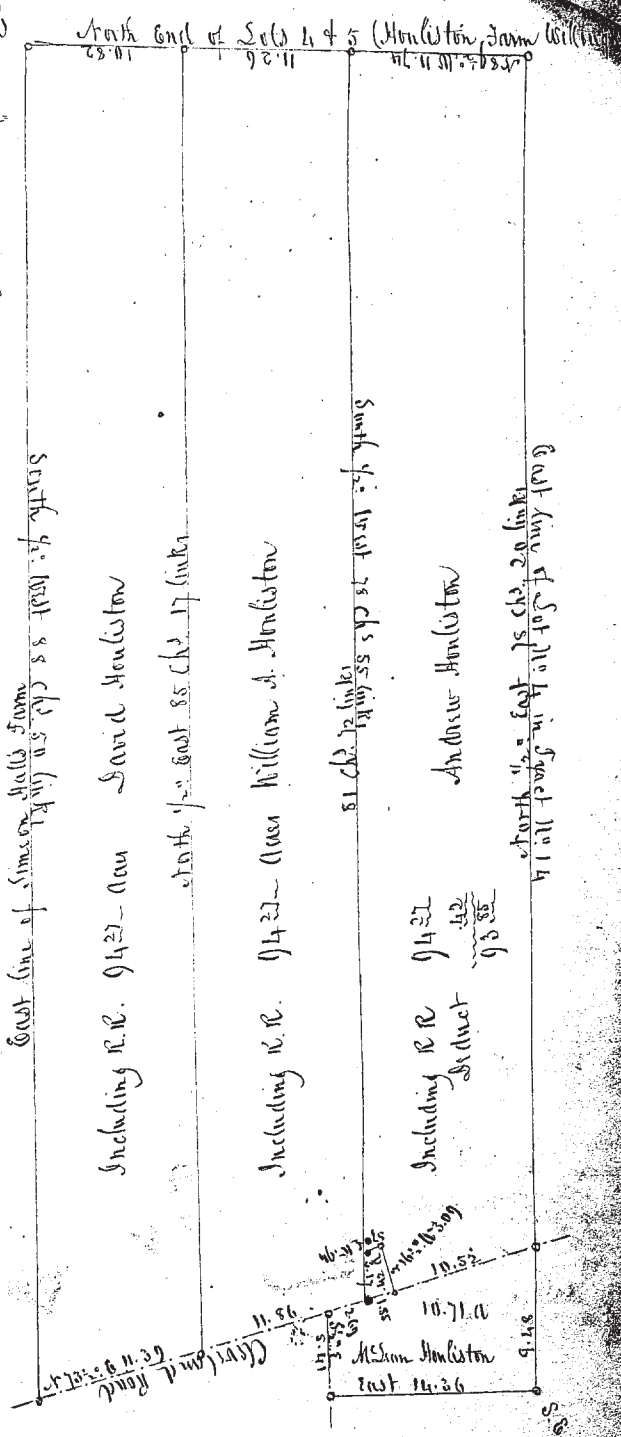 North End of Lots 4 & 5 (Houliston Farm
10.82
11.26
East line of Simeon Halls Farm
South ½° West 88 Chs 50 links
Including R.R. 94 27 Acres David Houliston
North ½° East 85 Chs. 17 links
Including R.R. 94 27 Acres William A. Houliston
South ½° West 78 Chs 55 links
81 Chs. 72 links
Including R R 94 27
Deduct .42
93 85
Andrew Houliston
North ½° East 78 Chs. 20 links
East line of Lot No 4 in Tract No 14
Cleveland Road
11.86
10.52
10.71 A
9.48
5.41
1.55
McLean Houliston
East 14.36